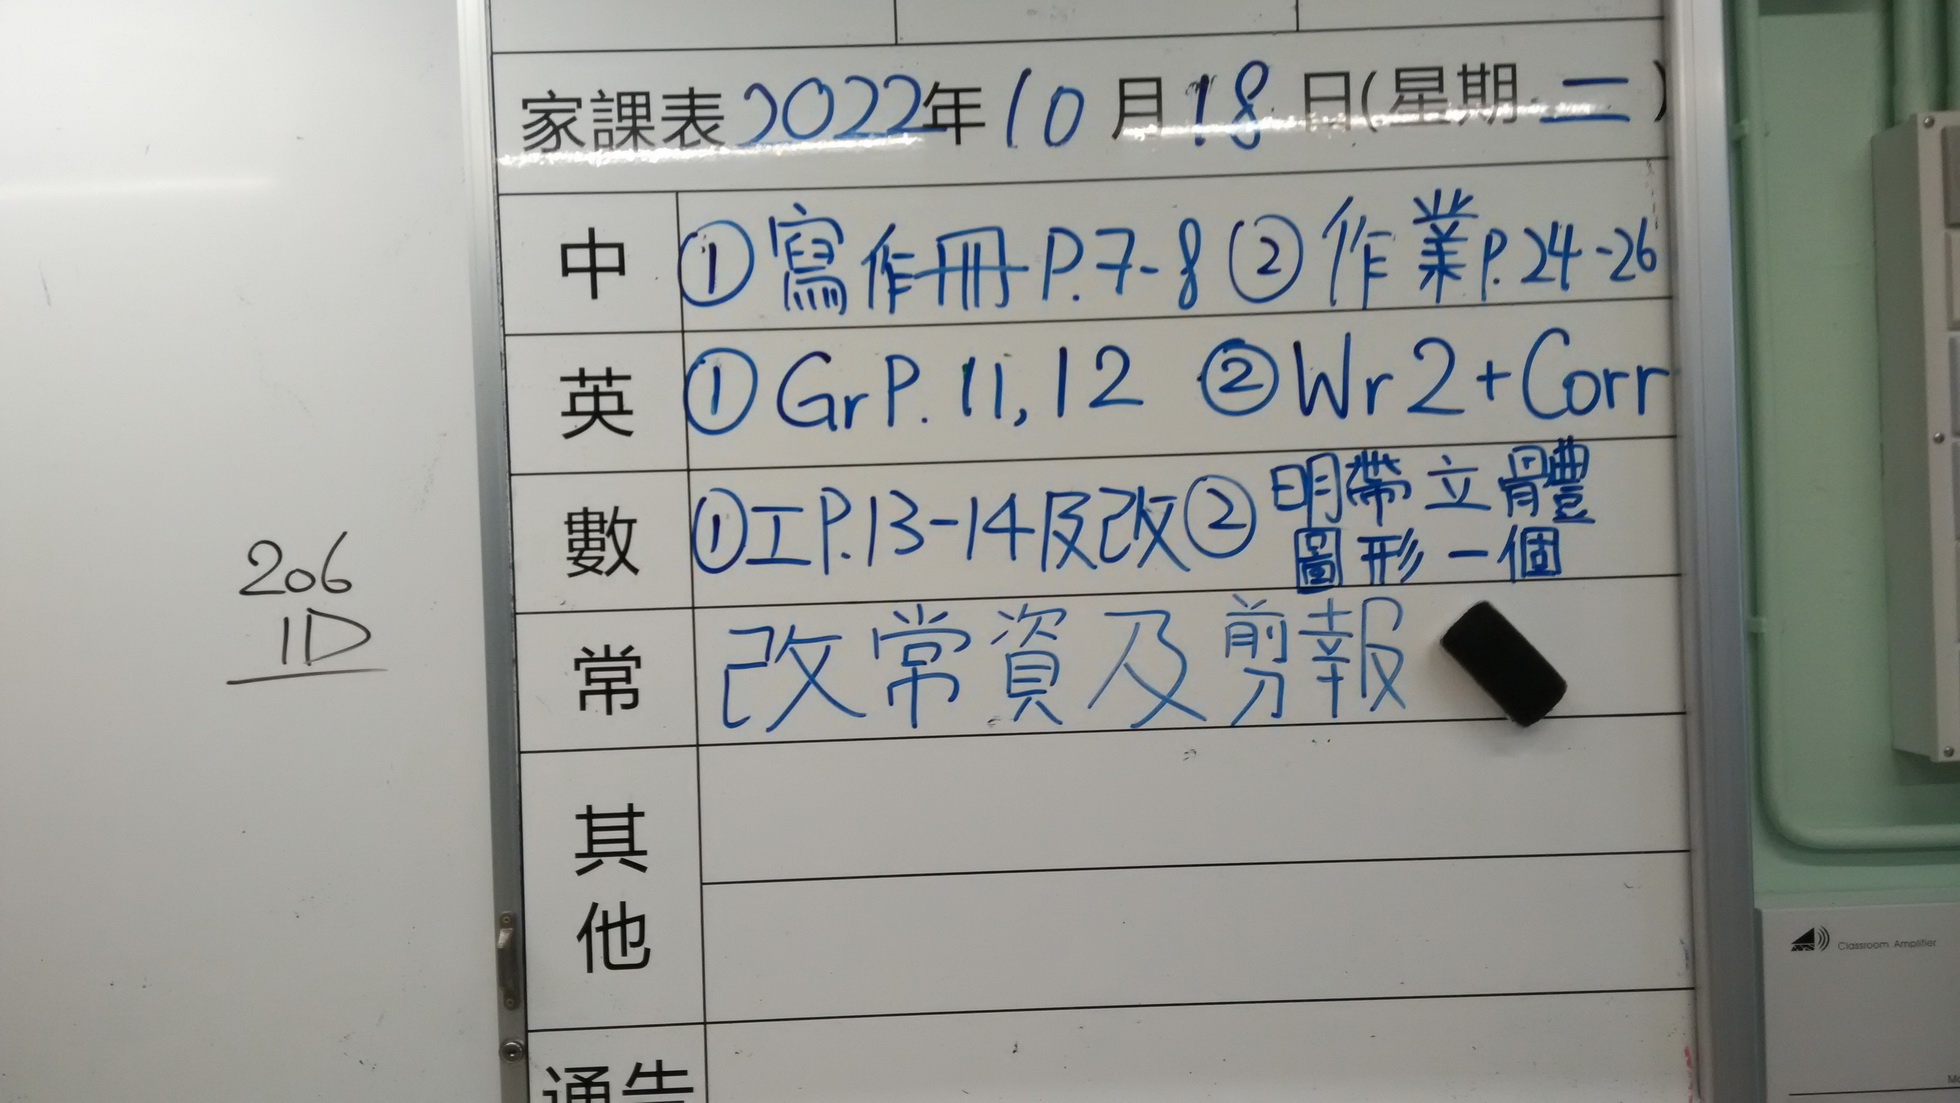 家課表2022年10月18日(星期二)
中 ①寫作冊P.7-8 ②作業P.24-26
英 ①Gr P.11,12 ②Wr 2+Corr
數 ①工P.13-14及改 ②明帶立體
圖形一個
常 改常資及剪報
其他
通告
206
1D
Classroom Amplifier